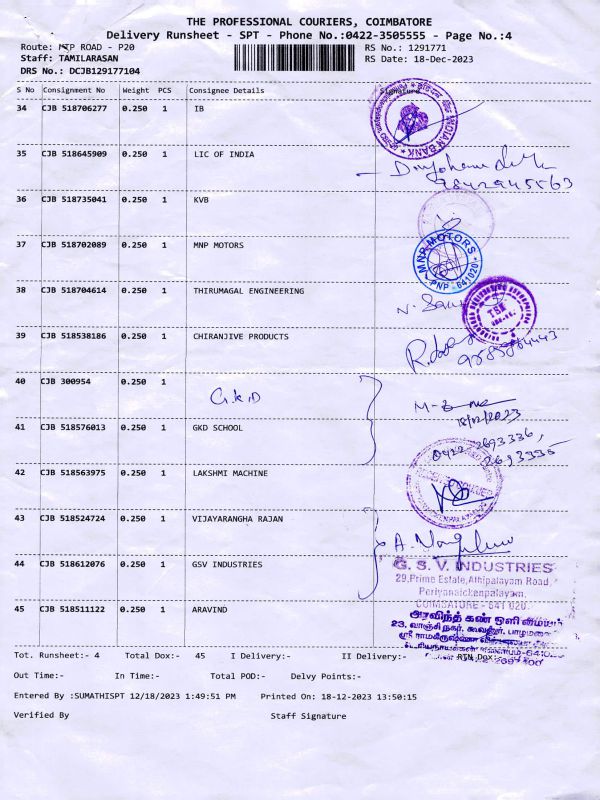 THE PROFESSIONAL COURIERS, COIMBATORE
Delivery Runsheet - SPT - Phone No.:0422-3505555 - Page No.:4
Route: MTP ROAD - P20 RS No.: 1291771
Staff: TAMILARASAN RS Date: 18-Dec-2023
DRS No.: DCJB129177104
S No Consignment No Weight PCS Consignee Details Signature
34 CJB 518706277 0.250 1 IB
INDIAN BANK
35 CJB 518645909 0.250 1 LIC OF INDIA
9842945563
36 CJB 518735041 0.250 1 KVB
37 CJB 518702089 0.250 1 MNP MOTORS
MNP MOTORS
PNP - 641020
38 CJB 518704614 0.250 1 THIRUMAGAL ENGINEERING
39 CJB 518538186 0.250 1 CHIRANJIVE PRODUCTS
40 CJB 300954 0.250 1 G.K.D
18/12/2023
41 CJB 518576013 0.250 1 GKD SCHOOL
0422-2693336,
2693335
42 CJB 518563975 0.250 1 LAKSHMI MACHINE
43 CJB 518524724 0.250 1 VIJAYARANGHA RAJAN
44 CJB 518612076 0.250 1 GSV INDUSTRIES
G. S. V. INDUSTRIES
29,Prime Estate,Athipalayam Road,
Periyanaickenpalayam,
COIMBATORE - 641 020.
45 CJB 518511122 0.250 1 ARAVIND
அரவிந்த் கண் ஒளி
Tot. Runsheet:- 4 Total Dox:- 45 I Delivery:- II Delivery:- RTN Dox:-
Out Time:- In Time:- Total POD:- Delvy Points:-
Entered By :SUMATHISPT 12/18/2023 1:49:51 PM Printed On: 18-12-2023 13:50:15
Verified By Staff Signature